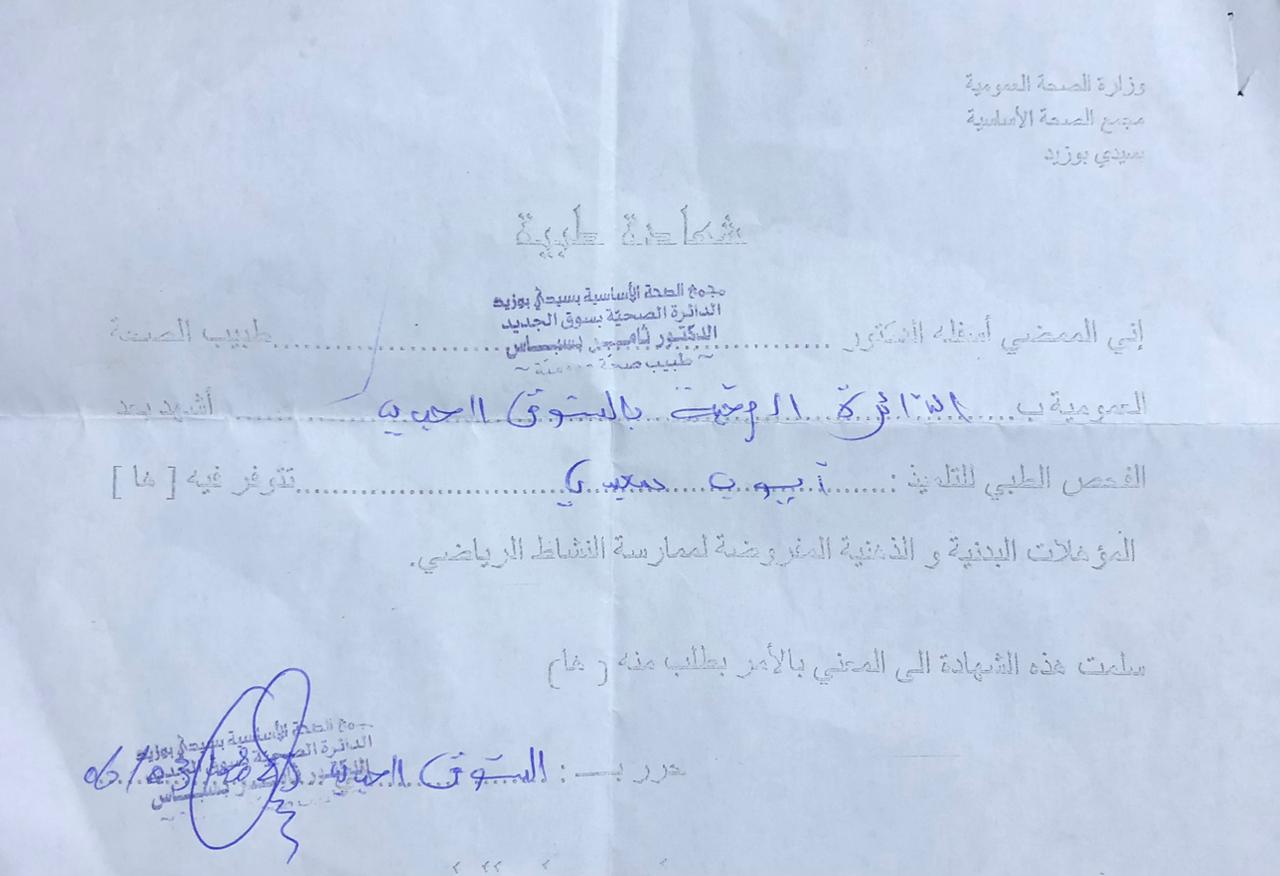 وزارة الصحة العمومية
مجمع الصحة الأساسية
بسيدي بوزيد
شهادة طبية
مجمع الصحة الأساسية بسيدي بوزيد
الدائرة الصحية بسوق الجديد
الدكتور ثامر بسباس
طبيب صحة عمومية
إني الممضي أسفله الدكتور ........ طبيب الصحة
العمومية ب.... الدائرة الصحية بالسوق الجديد .... أشهد بعد
الفحص الطبي للتلميذ : ..... أيوب ..... تتوفر فيه [ ها ]
المؤهلات البدنية و الذهنية المفروضة لممارسة النشاط الرياضي.
سلمت هذه الشهادة الى المعني بالأمر بطلب منه ( ها)
مجمع الصحة الأساسية بسيدي بوزيد
الدائرة الصحية بسوق الجديد
حرر بـ : السوق الجديد